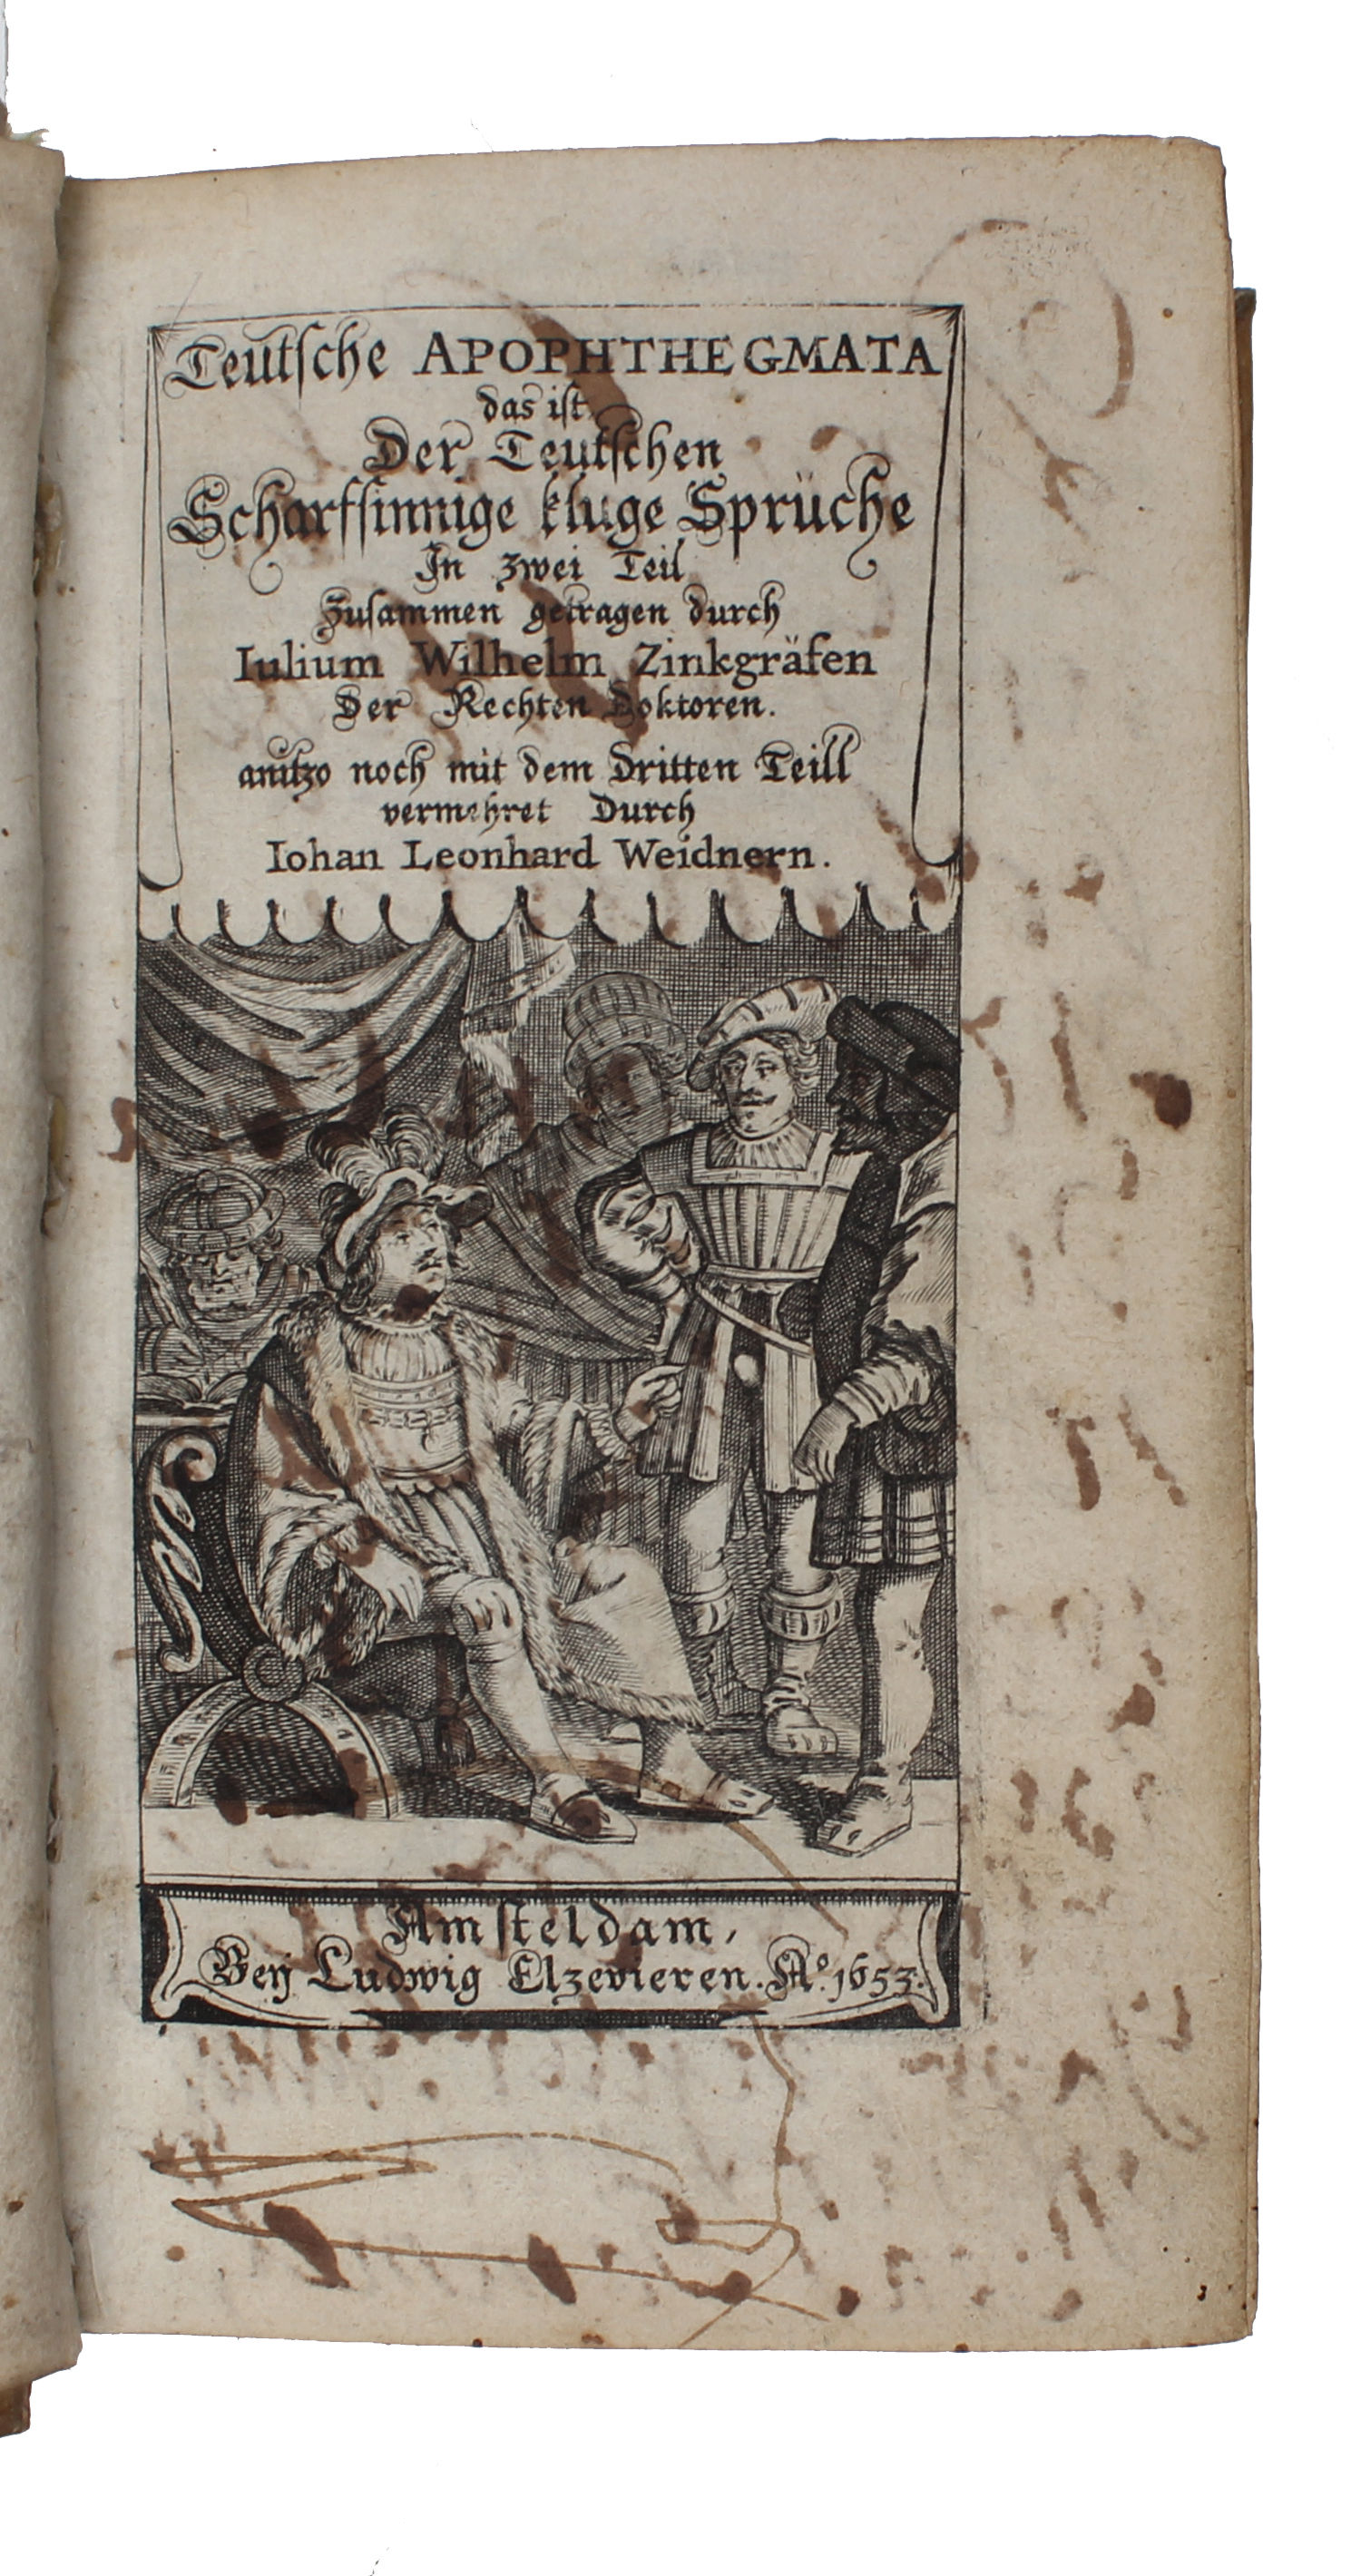 Teutsche APOPHTHEGMATA
das ist
Der Teutschen
Scharfsinnige kluge Sprüche
In zwei Teil
Zusammen getragen durch
Iulium Wilhelm Zinkgräfen
Der Rechten Doktoren.
anitzo noch mit dem Dritten Teill
vermehret Durch
Iohan Leonhard Weidnern.
Amsteldam,
Beÿ Ludwig Elzevieren. Aº. 1653.